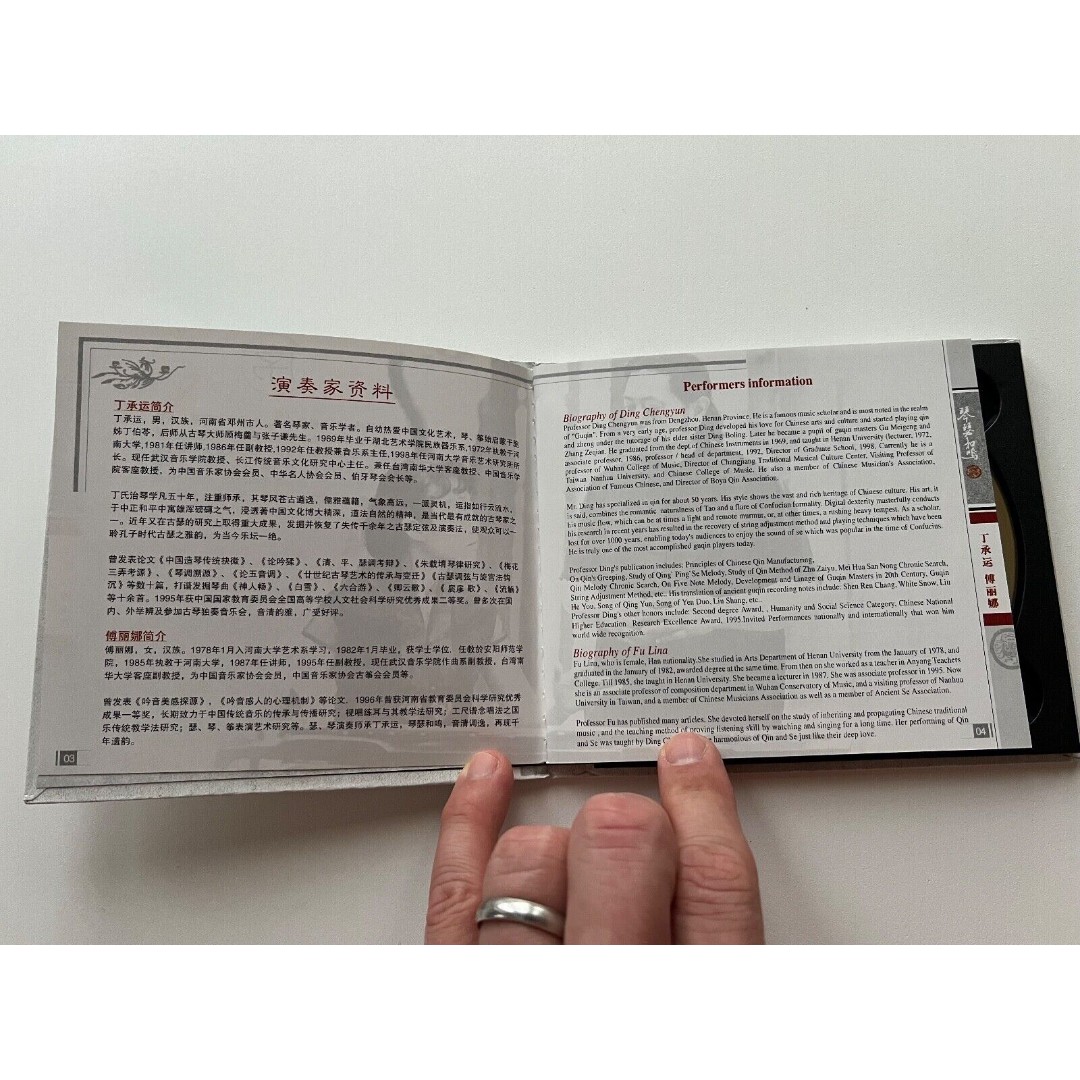 演奏家资料
丁承运简介
丁承运，男，汉族，河南省邓州市人。著名琴家、音乐学者。自幼热爱中国文化艺术，琴、筝始启蒙于胞
姊丁伯苓，后师从古琴大师顾梅羹与张子谦先生。1969年毕业于湖北艺术学院民族器乐系,1972年执教于河
南大学,1981年任讲师,1986年任副教授,1992年任教授兼音乐系主任,1998年任河南大学音乐艺术研究所所
长。现任武汉音乐学院教授、长江传统音乐文化研究中心主任。兼任台湾南华大学客座教授、中国音乐学
院客座教授，为中国音乐家协会会员、中华名人协会会员、伯牙琴会会长等。
丁氏治琴学凡五十年，注重师承，其琴风苍古遒逸，儒雅蕴籍，气象高远，一派灵机，运指如行云流水，
于中正和平中寓雄浑磅礴之气，浸透著中国文化博大精深，道法自然的精神，是当代最有成就的古琴家之
一。近年又在古瑟的研究上取得重大成果，发掘并恢复了失传千余年之古瑟定弦及演奏法，使观众可以一
聆孔子时代古瑟之雅韵，为当今乐坛一绝。
曾发表论文《中国造琴传统抉微》、《论吟猱》、《清、平、瑟调考辩》、《朱载堉琴律研究》、《梅花
三弄考源》、《琴调溯源》、《论五音调》、《廿世纪古琴艺术的传承与变迁》《古瑟调弦与旋宫法钩
沉》等数十篇，打谱发掘琴曲《神人畅》、《白雪》、《六合游》、《卿云歌》、《扊扅歌》、《流觞》
等十余首。1995年获中国国家教育委员会全国高等学校人文社会科学研究优秀成果二等奖。曾多次在国
内、外举办及参加古琴独奏音乐会，音清韵雅，广受好评。
傅丽娜简介
傅丽娜，女，汉族。1978年1月入河南大学艺术系学习，1982年1月毕业，获学士学位，任教於安阳师范学
院，1985年执教于河南大学，1987年任讲师，1995年任副教授，现任武汉音乐学院作曲系副教授，台湾南
华大学客座副教授，为中国音乐家协会会员，中国音乐家协会古筝会会员等。
曾发表《吟音美感探源》、《吟音感人的心理机制》等论文．1996年曾获河南省教育委员会科学研究优秀
成果一等奖，长期致力于中国传统音乐的传承与传播研究；视唱练耳与其教学法研究；工尺谱念唱法之国
乐传统教学法研究；瑟、琴、筝表演艺术研究等。瑟、琴演奏师承丁承运，琴瑟和鸣，音清调逸，再现千
年遗韵。
03
Performers information
Biography of Ding Chengyun
Professor Ding Chengyun was from Dengzhou, Henan Province. He is a famous music scholar and is most noted in the realm
of "Guqin". From a very early age, professor Ding developed his love for Chinese arts and culture and started playing qin
and zheng under the tutorage of his elder sister Ding Boling. Later he became a pupil of guqin masters Gu Meigeng and
Zhang Zeqian. He graduated from the dept of Chinese Instruments in 1969, and taught in Henan University (lecturer, 1972,
associate professor, 1986, professor / head of department, 1992, Director of Graduate School, 1998. Currently he is a
professor of Wuhan College of Music, Director of Changjiang Traditional Musical Culture Center, Visiting Professor of
Taiwan Nanhua University, and Chinese College of Music. He also a member of Chinese Musician's Association,
Association of Famous Chinese, and Director of Boya Qin Association.
Mr. Ding has specialized in qin for about 50 years. His style shows the vast and rich heritage of Chinese culture. His art, it
is said, combines the romantic naturalness of Tao and a flare of Confucian formality. Digital dexterity masterfully conducts
his music flow, which can be at times a light and remote murmur, or, at other times, a rushing heavy tempest. As a scholar,
his research in recent years has resulted in the recovery of string adjustment method and playing techniques which have been
lost for over 1000 years, enabling today's audiences to enjoy the sound of se which was popular in the time of Confucius.
He is truly one of the most accomplished guqin players today.
Professor Ding's publication includes: Principles of Chinese Qin Manufacturing,
On Qin's Greeping, Study of Qing' Ping' Se Melody, Study of Qin Method of Zhu Zaiyu, Mei Hua San Nong Chronic Search,
Qin Melody Chronic Search, On Five Note Melody, Development and Linage of Guqin Masters in 20th Century, Guqin
String Adjustment Method, etc.. His translation of ancient guqin recording notes include: Shen Ren Chang, White Snow, Liu
He You, Song of Qing Yun, Song of Yen Duo, Liu Shang, etc..
Professor Ding's other honors include: Second degree Award, , Humanity and Social Science Category, Chinese National
Higher Education Research Excellence Award, 1995.Invited Performances nationally and internationally that won him
world wide recognition.
Biography of Fu Lina
Fu Lina, who is female, Han nationality.She studied in Arts Department of Henan University from the January of 1978, and
graduated in the January of 1982, awarded degree at the same time. From then on she worked as a teacher in Anyang Teachers
College. Till 1985, she taught in Henan University. She became a lecturer in 1987. She was associate professor in 1995. Now
she is an associate professor of composition department in Wuhan Conservatory of Music, and a visiting professor of Nanhua
University in Taiwan, and a member of Chinese Musicians Association as well as a member of Ancient Se Association.
Professor Fu has published many articles. She devoted herself on the study of inheriting and propagating Chinese traditional
music , and the teaching method of proving listening skill by watching and singing for a long time. Her performing of Qin
and Se was taught by Ding harmonious of Qin and Se just like their deep love.
04
琴瑟和鸣
丁承运 傅丽娜